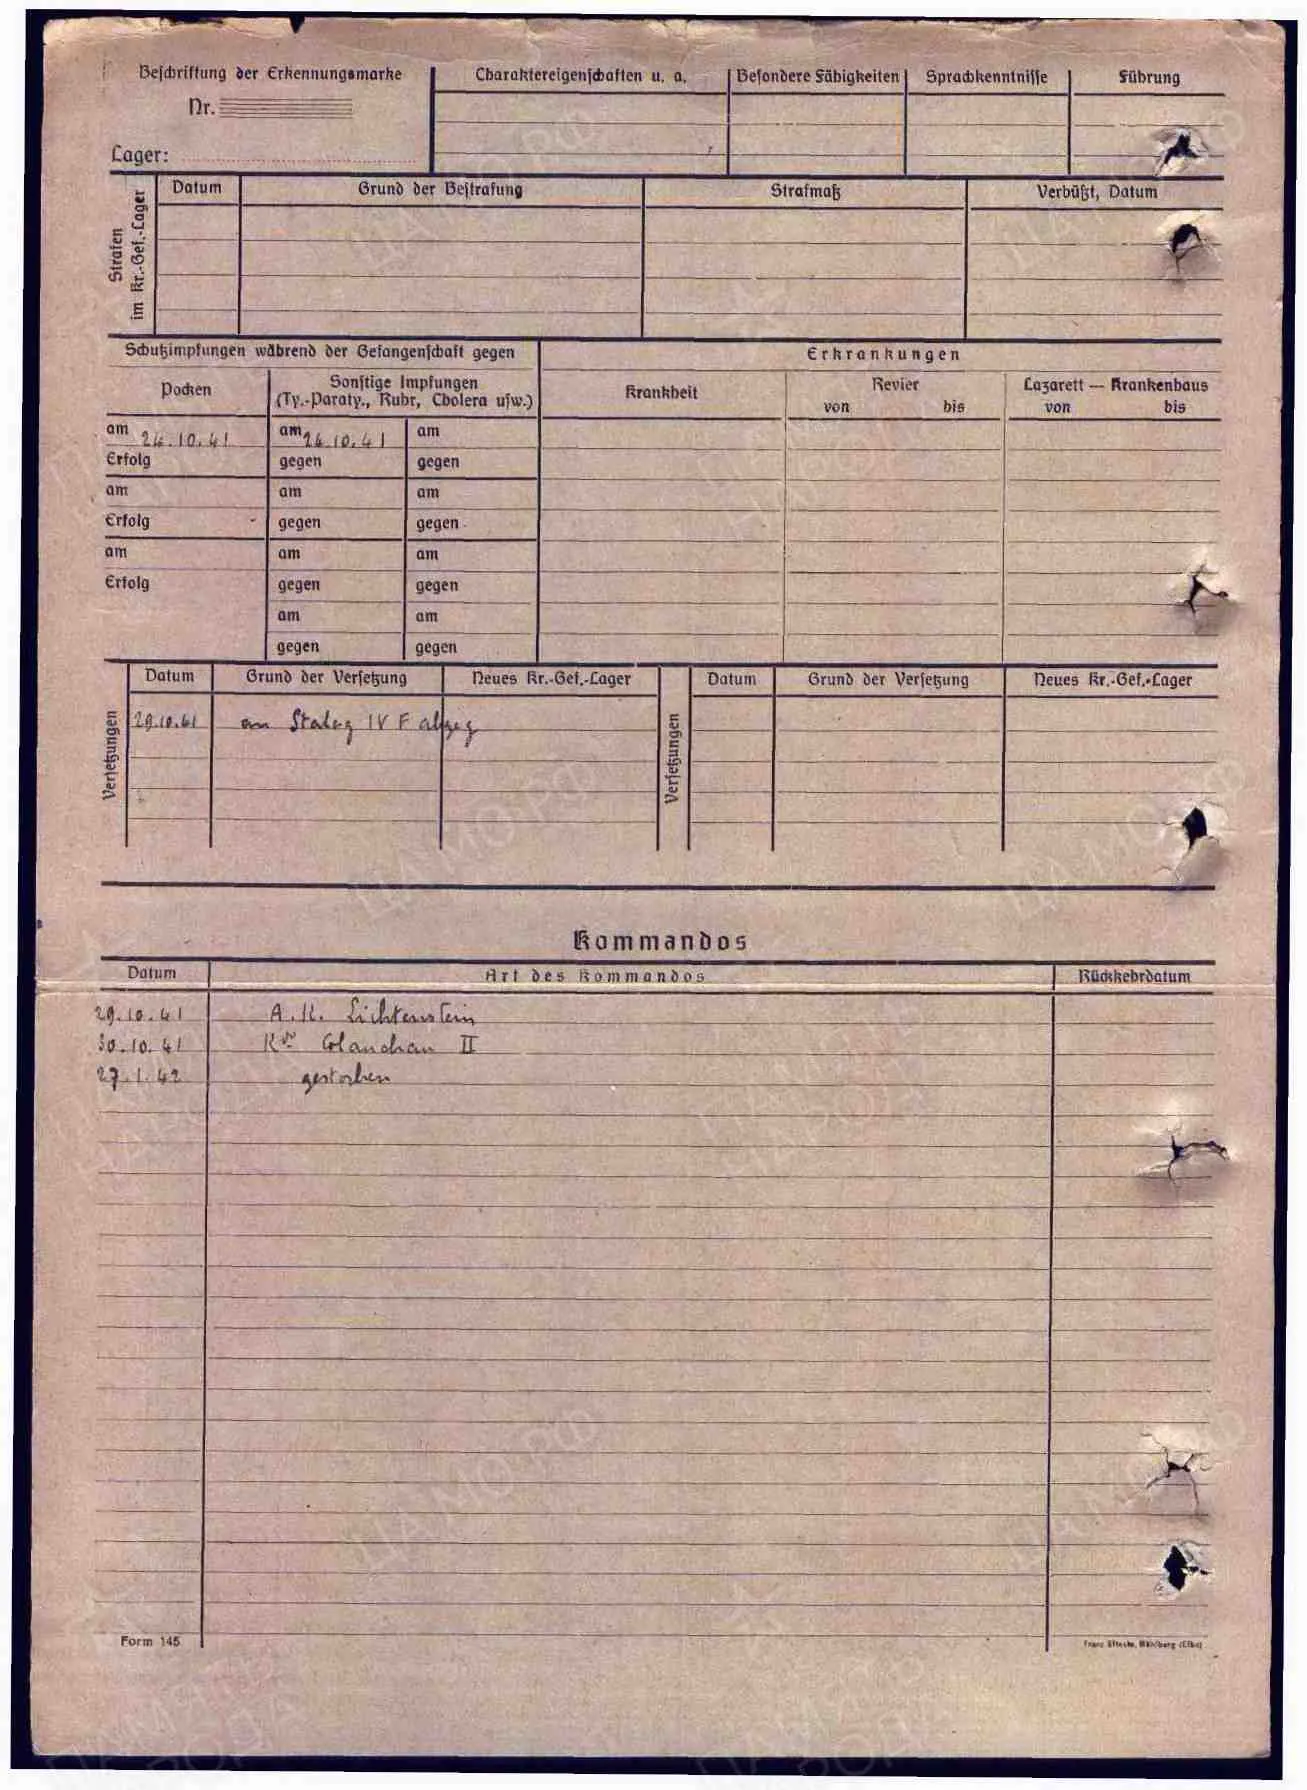 Beschriftung der Erkennungsmarke
Nr.
Lager:
Charaktereigenschaften u. a.
Besondere Fähigkeiten
Sprachkenntnisse
Führung
Strafen im Kr.-Gef.-Lager
Datum
Grund der Bestrafung
Strafmaß
Verbüßt, Datum
Schutzimpfungen während der Gefangenschaft gegen
Erkrankungen
Pocken
Sonstige Impfungen
(Ty.-Paraty., Ruhr, Cholera usw.)
Krankheit
Revier
von bis
Lazarett — Krankenhaus
von bis
am 24.10.41 am 24.10.41 am
Erfolg gegen gegen
am am am
Erfolg gegen gegen
am am am
Erfolg gegen gegen
am am
gegen gegen
Versetzungen
Datum Grund der Versetzung Neues Kr.-Gef.-Lager
29.10.41 an Stalag IV F abgeg
Versetzungen
Datum Grund der Versetzung Neues Kr.-Gef.-Lager
Kommandos
Datum Art des Kommandos Rückkehrdatum
29.10.41 A.K. Lichtenstein
30.10.41 Glauchau II
27.1.42 gestorben
Form 145
Mühlberg (Elbe)
ЦАМО РФ
ПАМЯТЬ НАРОДА